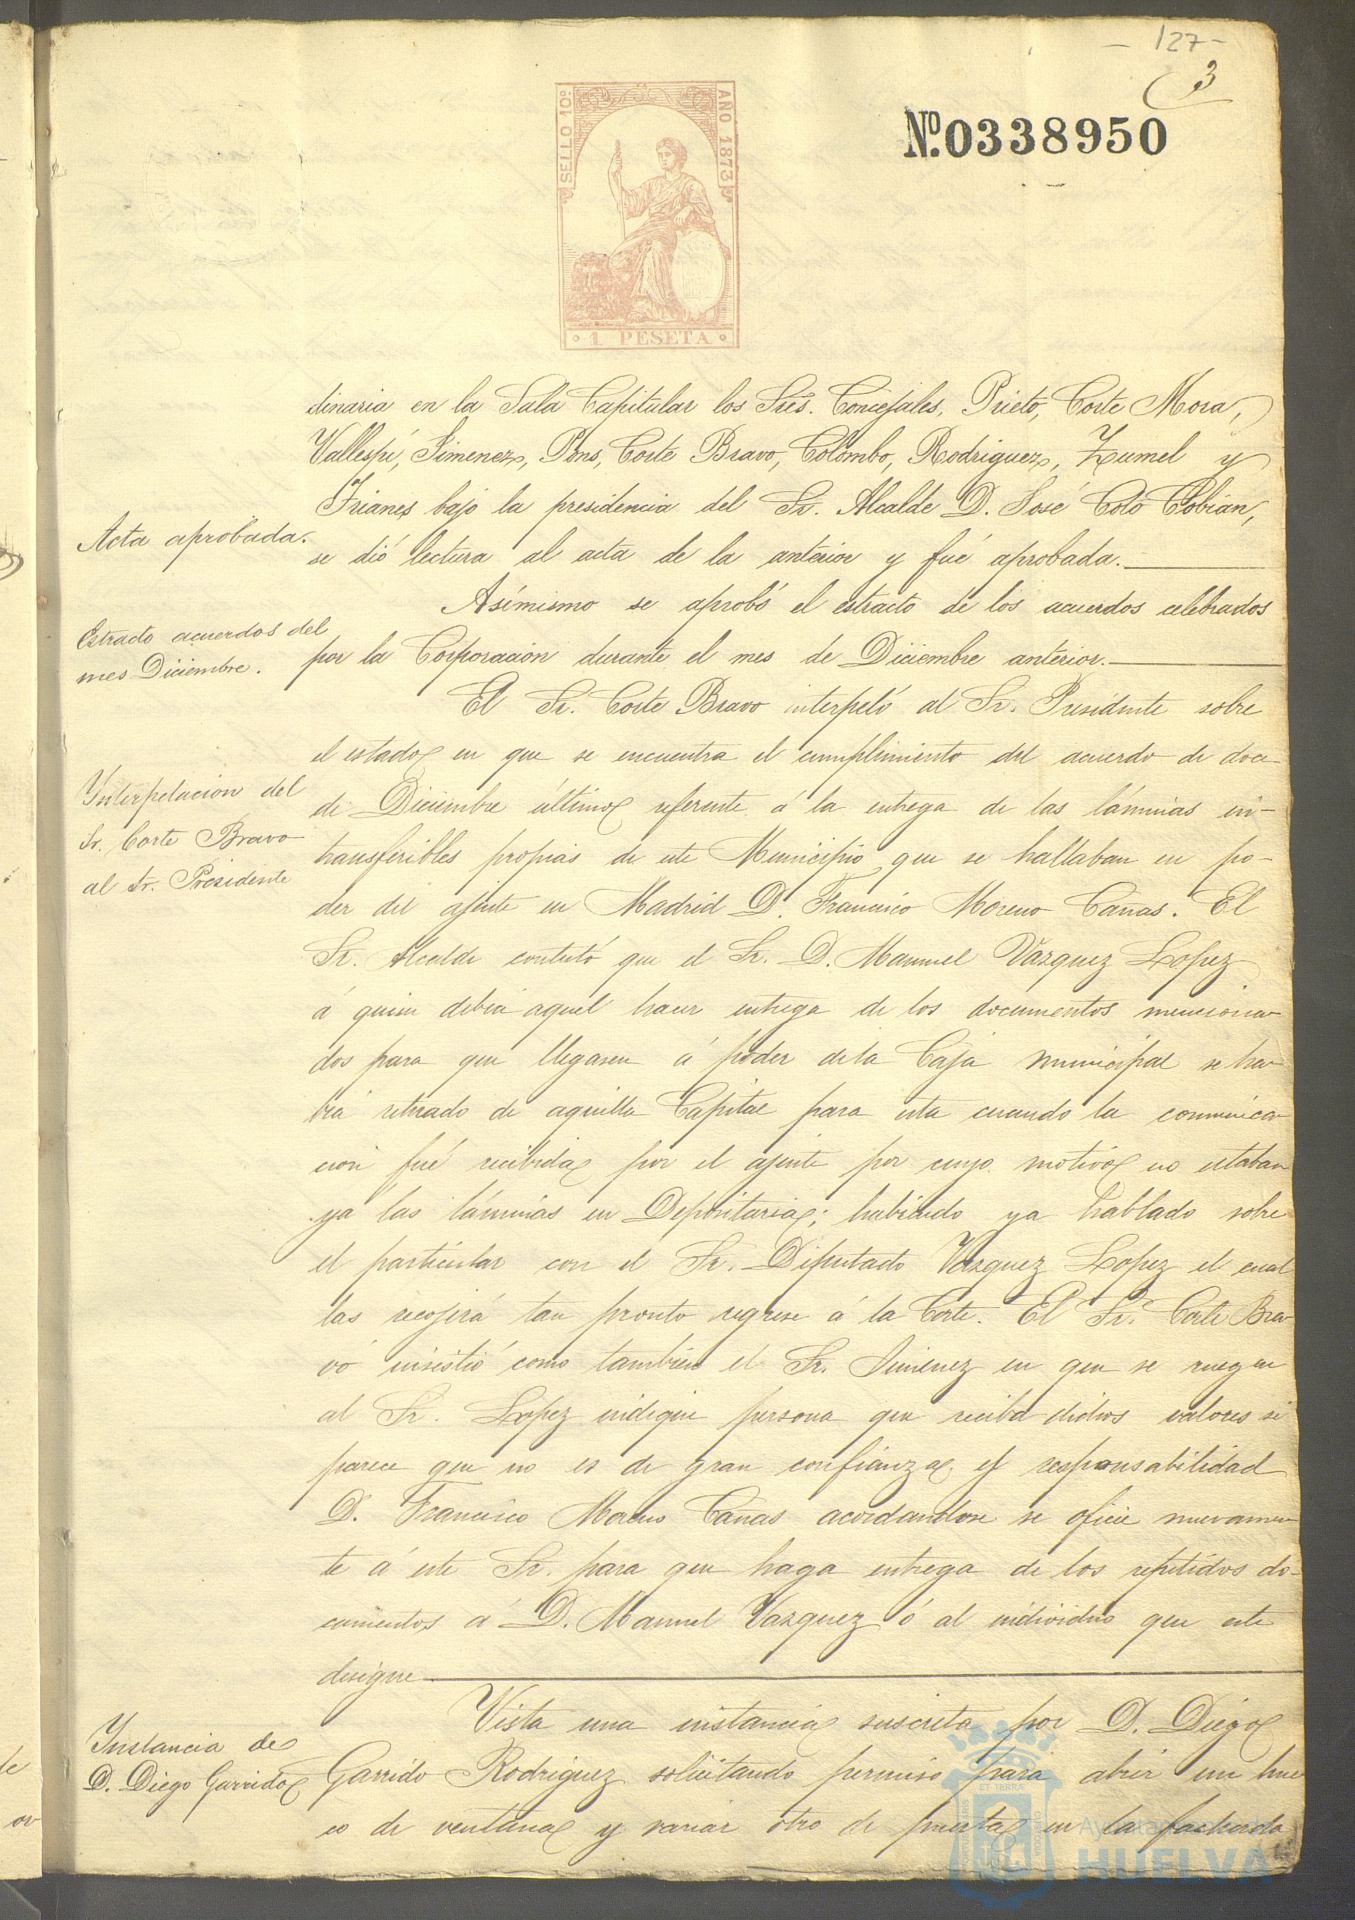 - 127 -
3
SELLO 10º
AÑO 1873
Nº 0338950
1 PESETA
dinaria en la Sala Capitular los Sres. Concejales, Prieto, Corte Mora,
Vallespí, Jimenez, Pons, Corte Bravo, Colombo, Rodriguez, Zumel y
Frianes bajo la presidencia del Sr. Alcalde D. José Coto Cobian,
Acta aprobada.
se dió lectura al acta de la anterior y fué aprobada.
Asimismo se aprobó el estracto de los acuerdos celebrados
Estracto acuerdos del
mes Diciembre.
por la Corporacion durante el mes de Diciembre anterior.
El Sr. Corte Bravo interpeló al Sr. Presidente sobre
el estado en que se encuentra el cumplimiento del acuerdo de doce
Interpelacion del
Sr. Corte Bravo
al Sr. Presidente
de Diciembre último referente á la entrega de las láminas in-
transferibles propias de este Municipio que se hallaban en po-
der del ajente en Madrid D. Francisco Moreno Cañas. El
Sr. Alcalde contestó que el Sr. D. Manuel Vazquez Lopez
á quien debia aquel hacer entrega de los documentos menciona-
dos para que llegasen á poder de la Caja municipal se ha-
bia retirado de aquella Capital para esta cuando la comunica-
cion fué recibida por el ajente por cuyo motivo no estaban
ya las láminas en Depositaria; habiendo ya hablado sobre
el particular con el Sr. Diputado Vazquez Lopez el cual
las recojirá tan pronto regrese á la Corte. El Sr. Corte Bra-
vo insistió como tambien el Sr. Jimenez en que se ruegue
al Sr. Lopez indique persona que reciba dichos valores si
parece que no es de gran confianza y responsabilidad
D. Francisco Moreno Cañas acordandose se oficie nuevamen-
te á este Sr. para que haga entrega de los repetidos do-
cumentos á D. Manuel Vazquez ó al individuo que este
designe
Vista una instancia suscrita por D. Diego
Instancia de
D. Diego Garrido
Garrido Rodriguez solicitando permiso para abrir un hue-
co de ventana y variar otro de puerta en la fachada
Ayuntamiento de
HUELVA